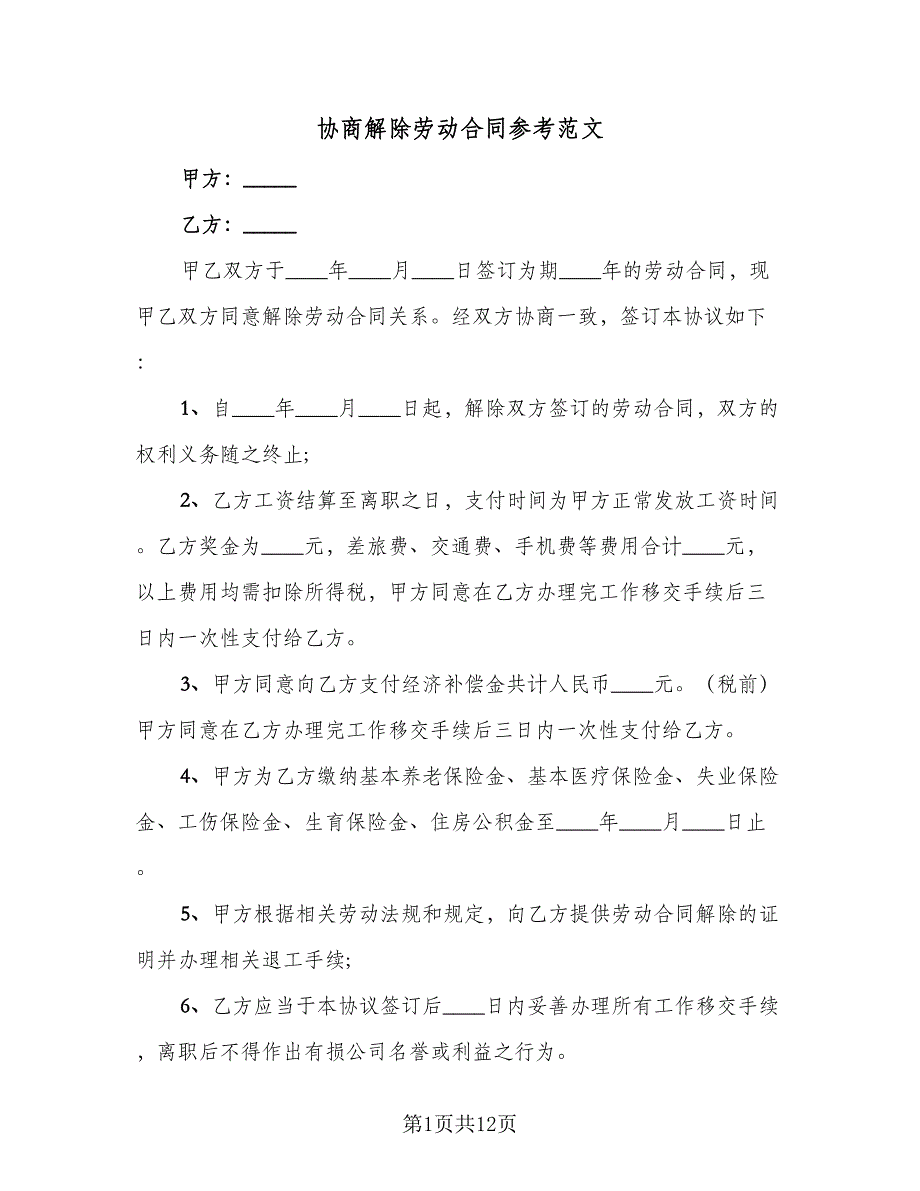 协商解除劳动合同参考范文
甲方：_____
乙方：_____
甲乙双方于____年____月____日签订为期____年的劳动合同，现
甲乙双方同意解除劳动合同关系。经双方协商一致，签订本协议如下
：
1、自____年____月____日起，解除双方签订的劳动合同，双方的
权利义务随之终止;
2、乙方工资结算至离职之日，支付时间为甲方正常发放工资时间
。乙方奖金为____元，差旅费、交通费、手机费等费用合计____元，
以上费用均需扣除所得税，甲方同意在乙方办理完工作移交手续后三
日内一次性支付给乙方。
3、甲方同意向乙方支付经济补偿金共计人民币____元。（税前）
甲方同意在乙方办理完工作移交手续后三日内一次性支付给乙方。
4、甲方为乙方缴纳基本养老保险金、基本医疗保险金、失业保险
金、工伤保险金、生育保险金、住房公积金至____年____月____日止
。
5、甲方根据相关劳动法规和规定，向乙方提供劳动合同解除的证
明并办理相关退工手续;
6、乙方应当于本协议签订后____日内妥善办理所有工作移交手续
，离职后不得作出有损公司名誉或利益之行为。
第1页共12页